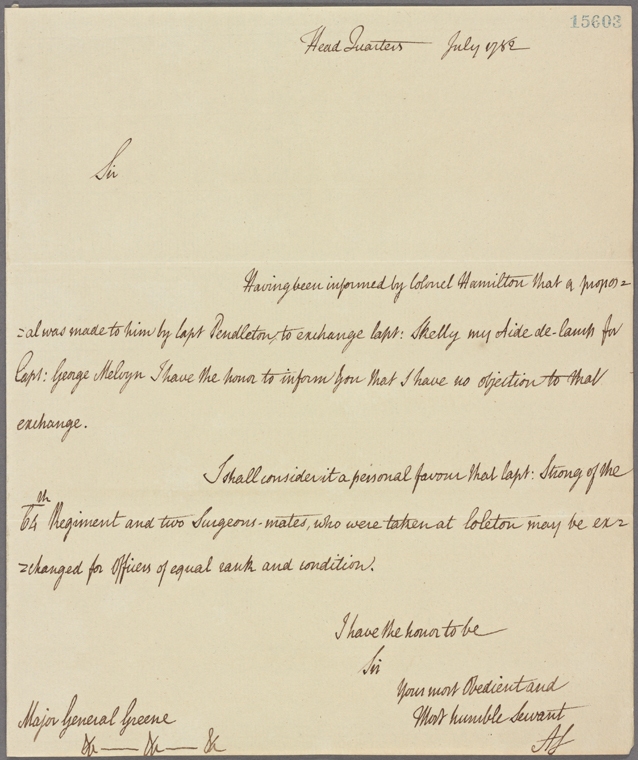 15603
Head Quarters July 1782
Sir
Having been informed by Colonel Hamilton that a propos=
=al was made to him by Capt Pendleton, to exchange Capt: Skelly my Aide de-Camp for
Capt: George Melvyn I have the honor to inform You that I have no objection to that
exchange.
I shall consider it a personal favour that Capt: Strong of the
64th Regiment and two Surgeons-mates, who were taken at Coleton may be ex=
=changed for Officers of equal rank and condition.
I have the honor to be
Sir
Yours most Obedient and
Most humble Servant
AL
Major General Greene
&c — &c — &c